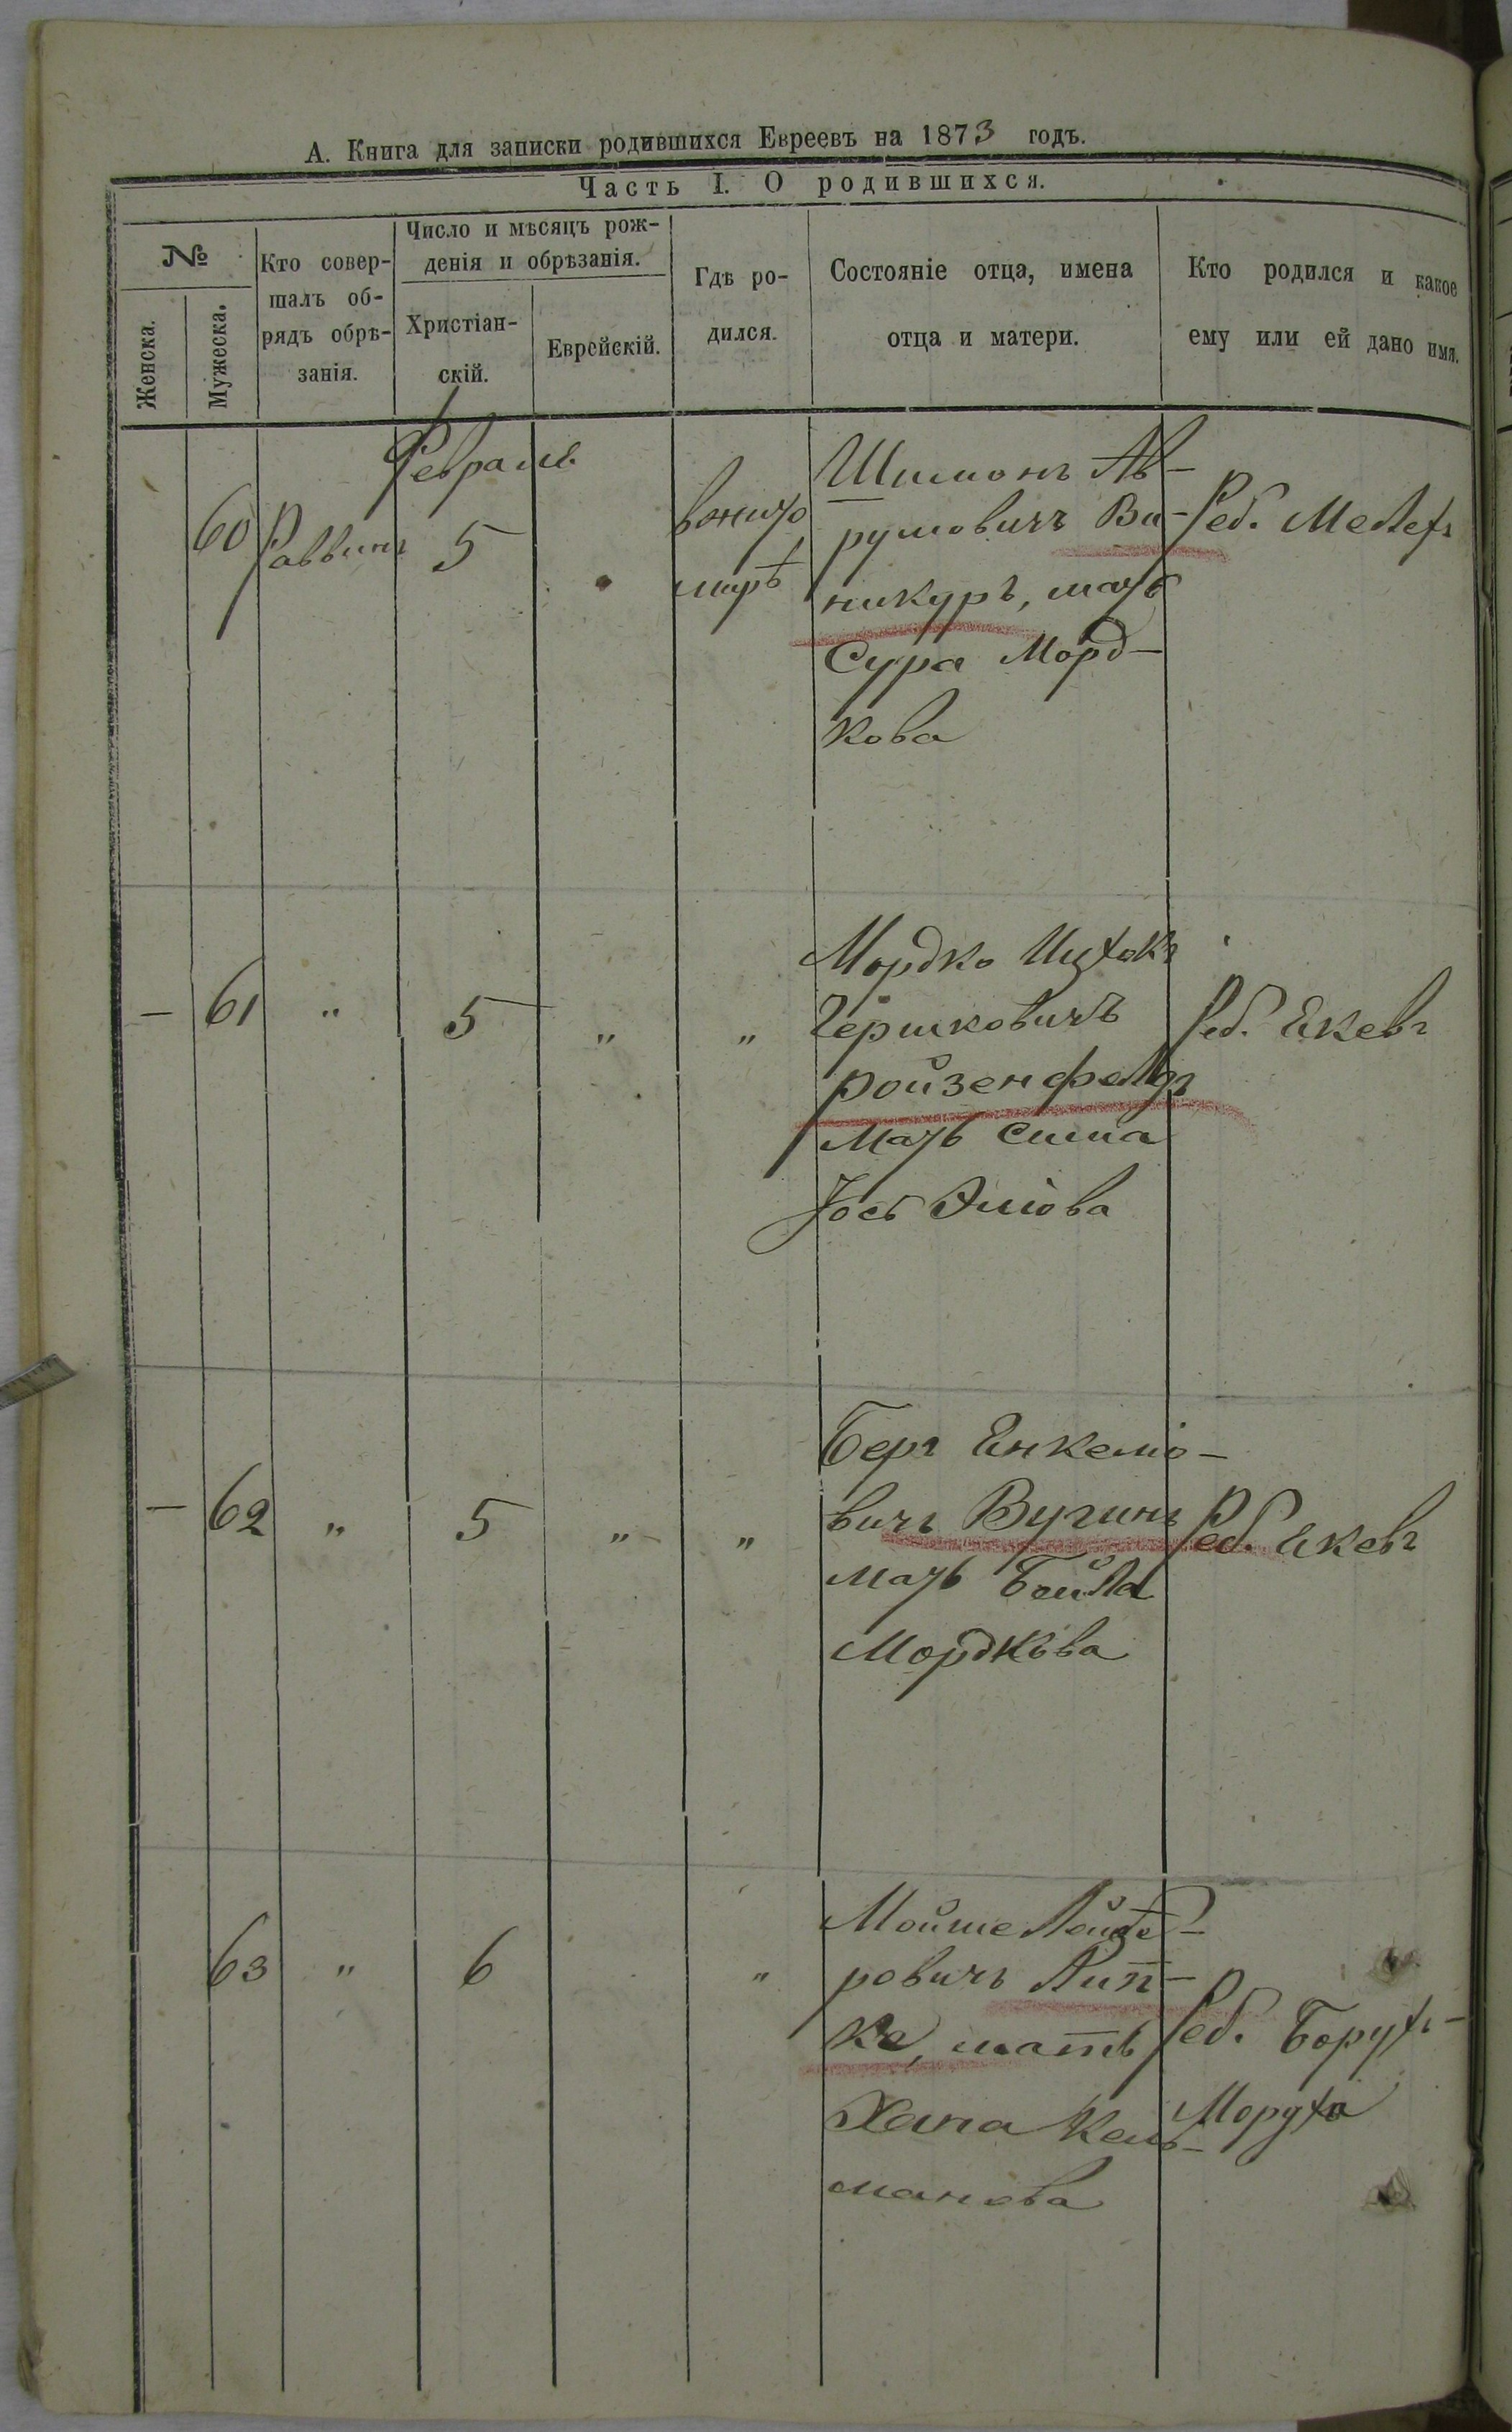 А. Книга для записки родившихся Евреевъ на 1873 годъ.
Часть I. О родившихся.
№
Женска.
Мужеска.
Кто совер-
шалъ об-
рядъ обрѣ-
занія.
Число и мѣсяцъ рож-
денія и обрѣзанія.
Христіан-
скій.
Еврейскій.
Гдѣ ро-
дился.
Состояніе отца, имена
отца и матери.
Кто родился и какое
ему или ей дано имя.
Февраль
60 Раввинъ 5
вжито
мирѣ
Шимонъ Ав-
румовичъ Ви-
никуръ, мать
Сура Морд-
кова
Реб. Мелехъ
— 61 " 5 " "
Мордко Ицхокъ
Гершковичъ
Ройзенфелдъ
Мать Сима
Гось Эліова
Реб. Екевъ
— 62 " 5 " "
Беръ Енкеліо-
вичъ Вугинъ
мать Бейла
Мордкова
Реб. Екевъ
63 " 6 "
Мойше Лейбе-
ровичъ Лип-
ке, мать
Хана Каль-
манова
Реб. Борухъ-
Моруха